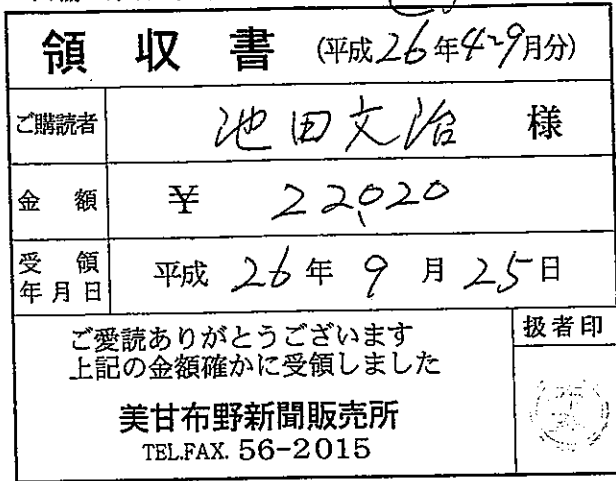 領収書 (平成26年4~9月分)
ご購読者 池田文治 様
金額 ¥ 22,020
受領年月日 平成 26年 9月 25日
ご愛読ありがとうございます 扱者印
上記の金額確かに受領しました
美甘布野新聞販売所
TEL.FAX. 56-2015